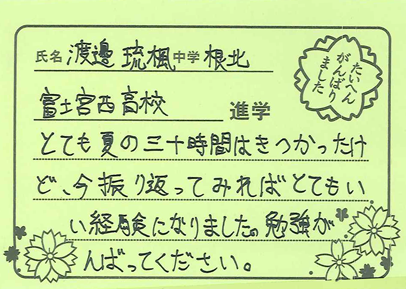 氏名 渡邊 琉楓 中学 根北
富士宮西高校 進学
たいへん
がんばり
ました
とても夏の三十時間はきつかったけ
ど、今振り返ってみればとてもい
い経験になりました。勉強が
んばってください。